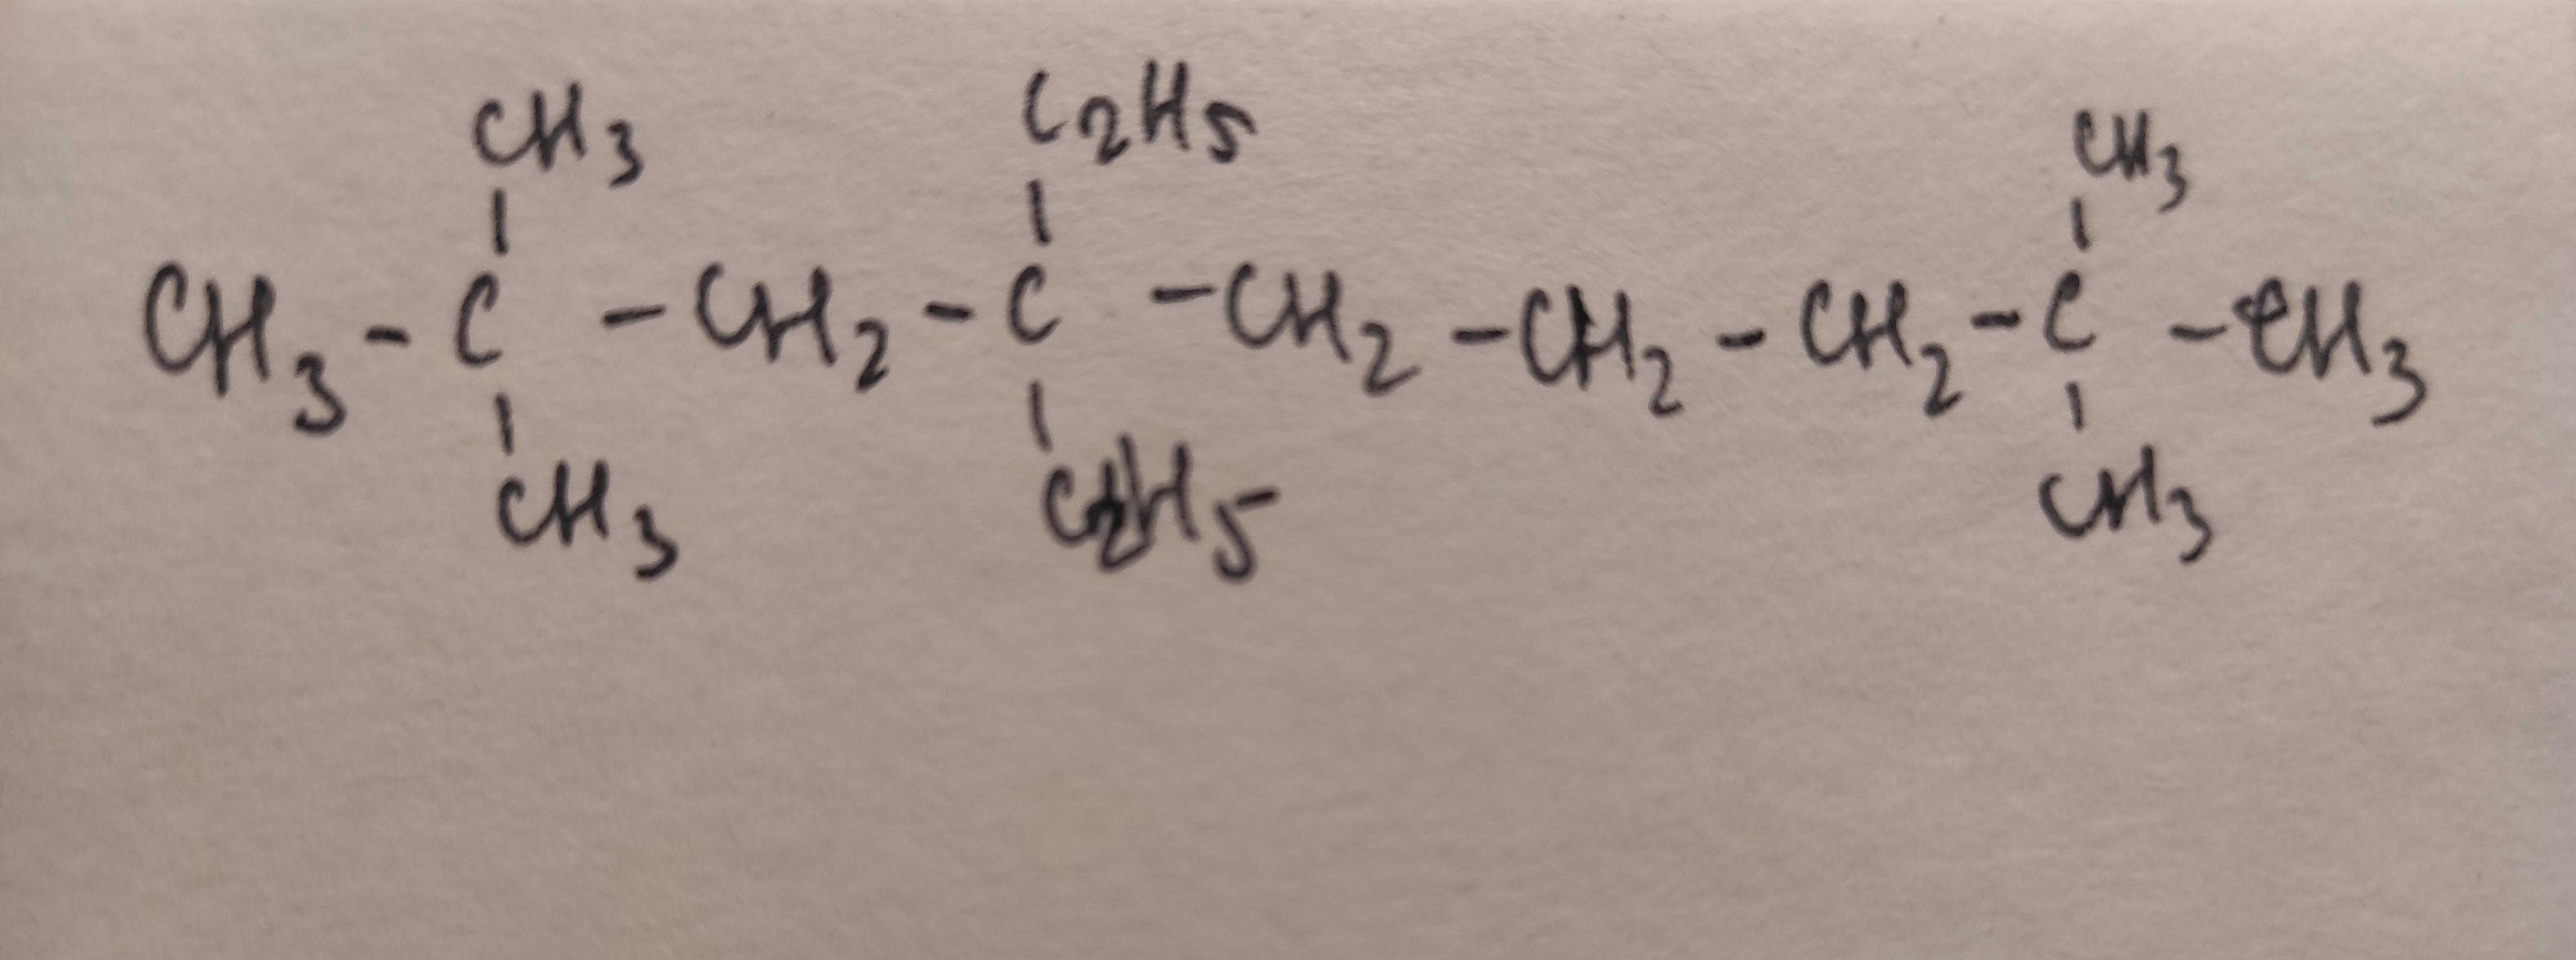 CH3 C2H5 CH3
CH3 - C - CH2 - C - CH2 - CH2 - CH2 - C - CH3
CH3 C2H5 CH3